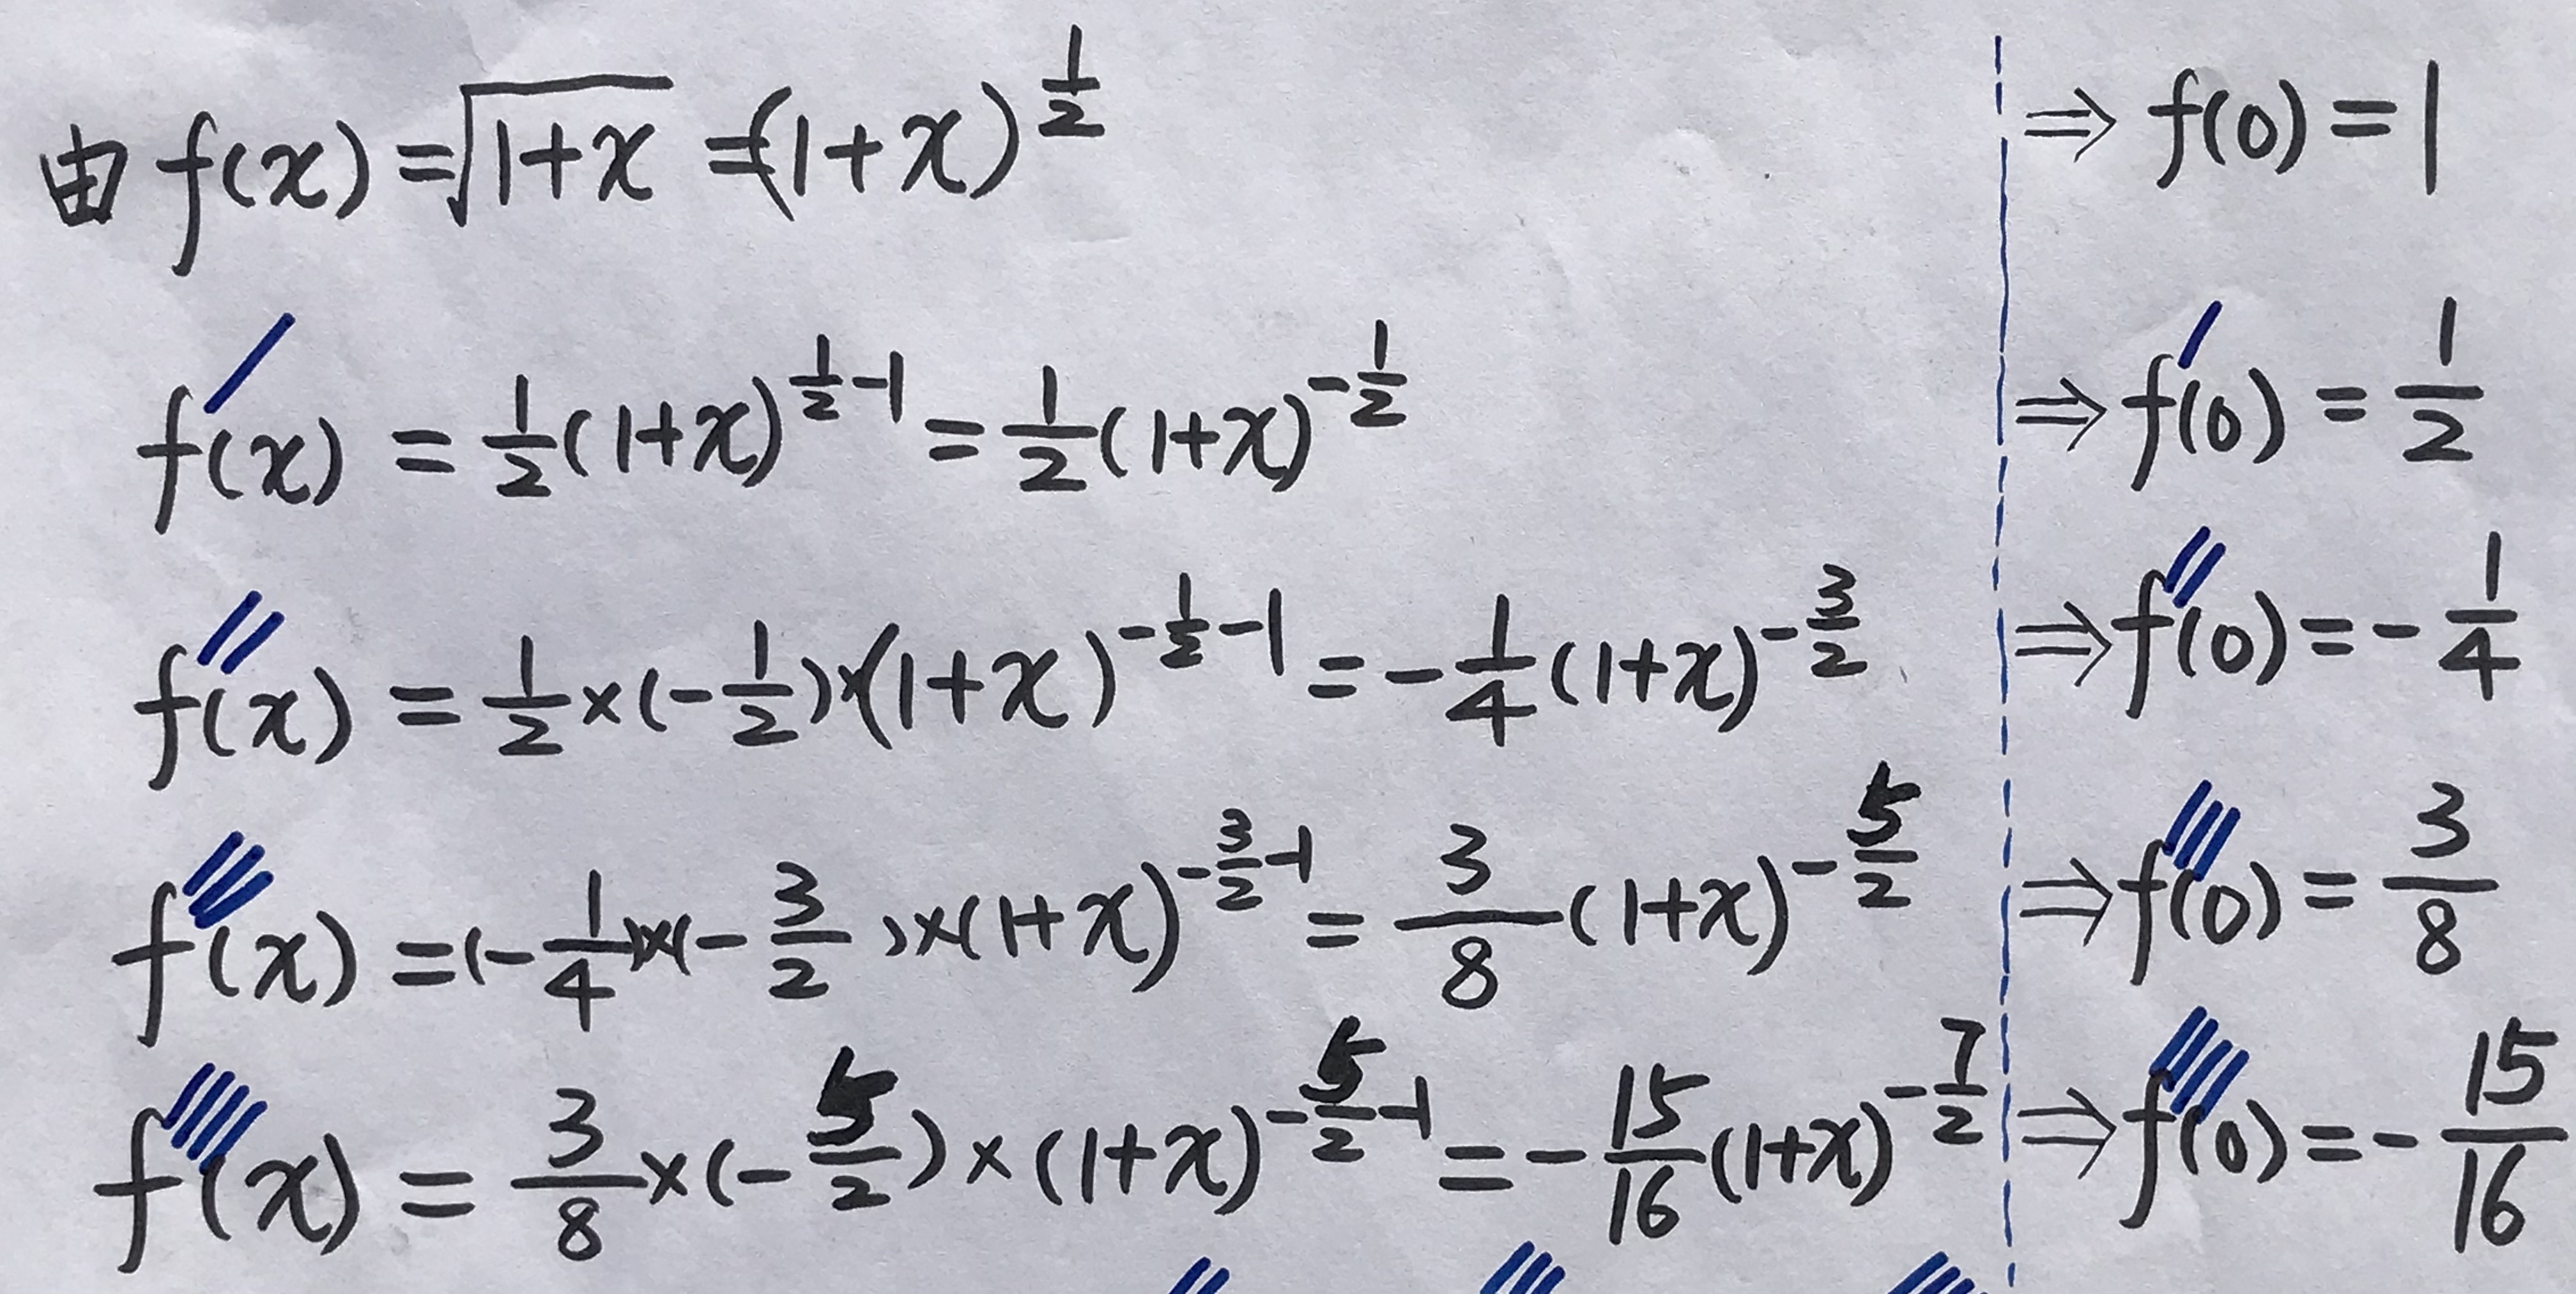 由 f(x) = √(1+x) = (1+x)^(1/2) ⇒ f(0) = 1
f′(x) = 1/2(1+x)^(1/2-1) = 1/2(1+x)^(-1/2) ⇒ f′(0) = 1/2
f″(x) = 1/2×(-1/2)×(1+x)^(-1/2-1) = -1/4(1+x)^(-3/2) ⇒ f″(0) = -1/4
f‴(x) = (-1/4)×(-3/2)×(1+x)^(-3/2-1) = 3/8(1+x)^(-5/2) ⇒ f‴(0) = 3/8
f⁗(x) = 3/8×(-5/2)×(1+x)^(-5/2-1) = -15/16(1+x)^(-7/2) ⇒ f⁗(0) = -15/16